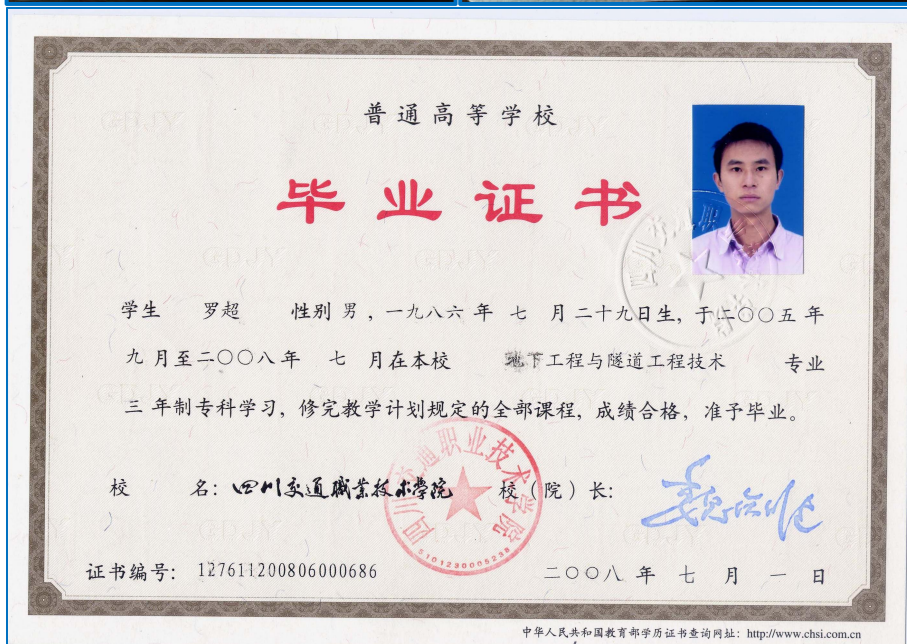 普通高等学校
毕业证书
学生 罗超 性别 男，一九八六 年 七 月二十九日生，于二〇〇五 年
九 月至二〇〇八 年 七 月在本校 地下工程与隧道工程技术 专业
三 年制专科学习，修完教学计划规定的全部课程，成绩合格，准予毕业。
校 名：四川交通職業技术學院 校（院）长：
四川交通职业技术学院
5101230005238
证书编号： 127611200806000686 二〇〇八 年 七 月 一 日
中华人民共和国教育部学历证书查询网址：http://www.chsi.com.cn